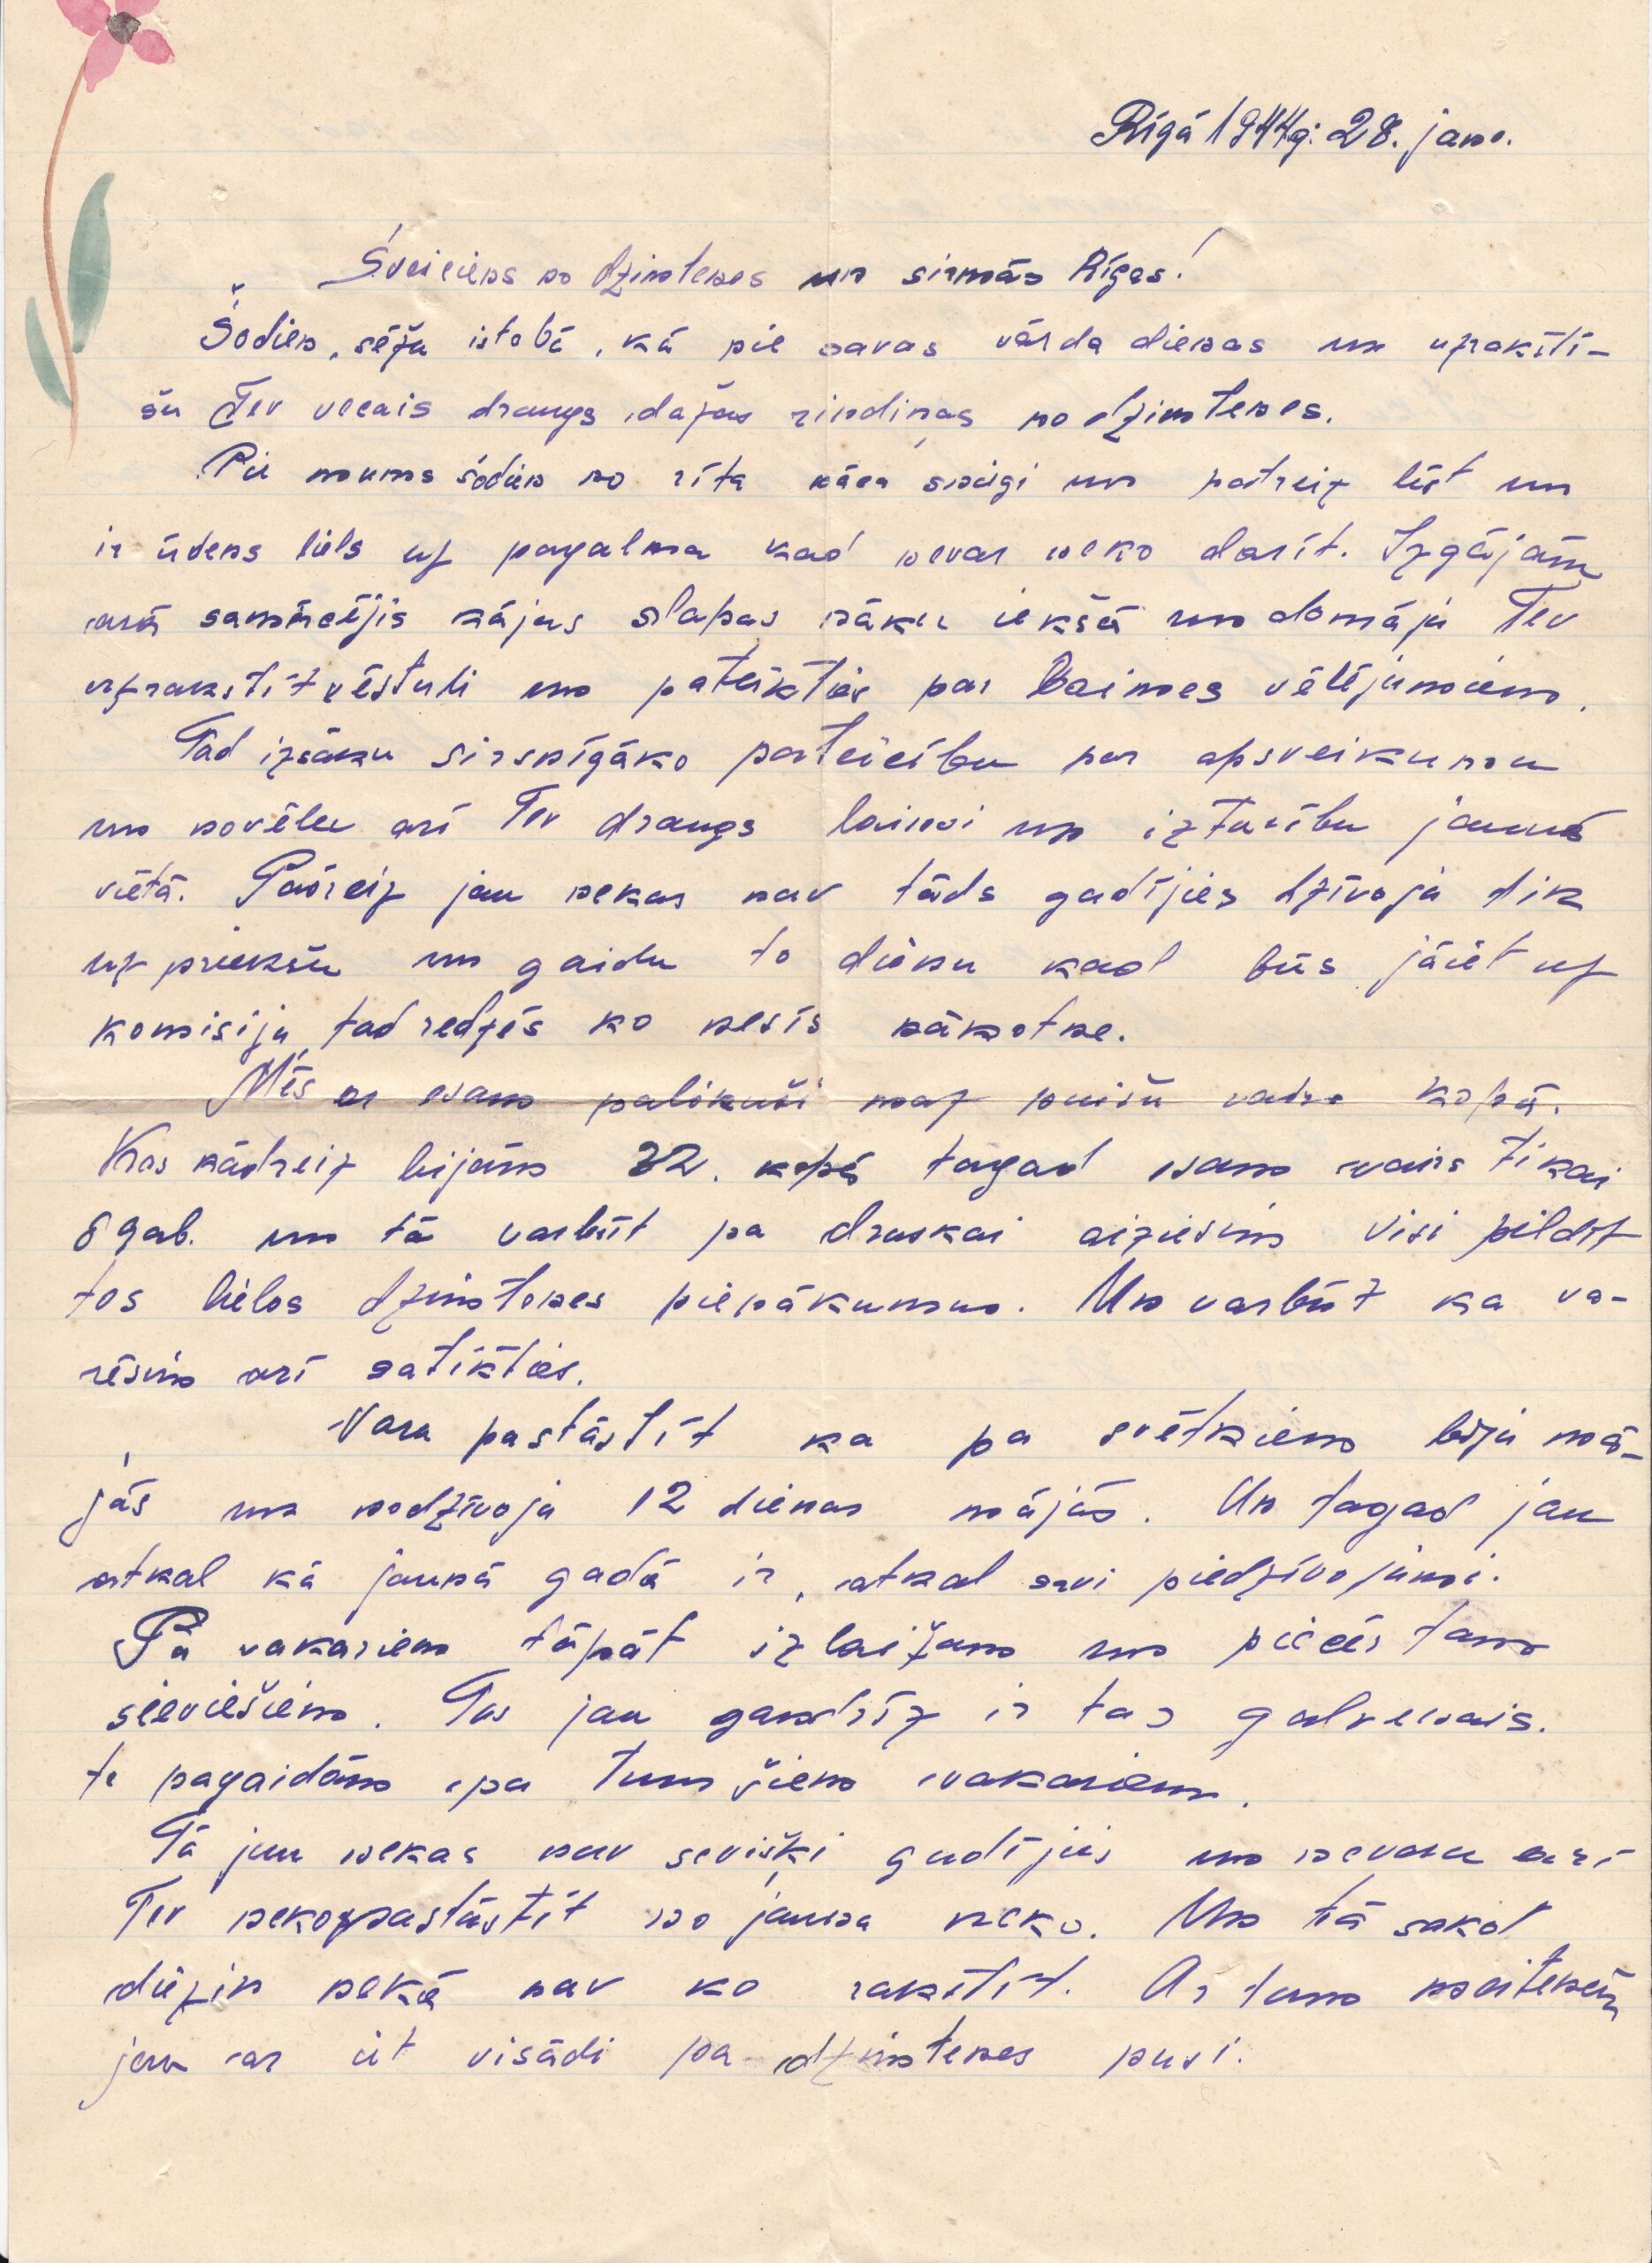 Rīgā 1944g. 28. janv.
Sveiciens no dzimtenes un sirmās Rīgas!
Šodien, sēžu istabā, kā pie savas vārda dienas un uzrakstī-
šu Tev vecais draugs dažas rindiņas no dzimtenes.
Pie mums šodien no rīta nāca sniegi un patreiz līst un
ir ūdens liels uz pagalma kad nevar neko darīt. Izgājām
arā samērcējis kājas slapas nāku iekšā un domāju Tev
uzrakstīt vēstuli un pateikties par laimes vēlējumiem.
Tad izsaku sirsnīgāko pateicību par apsveikumu
un novēlu arī Tev draugs laimi un izturību jaunā
vietā. Pašreiz jau nekas nav tāds gadījies dzīvoju tik
uz priekšu un gaidu to dienu kad būs jāiet uz
komisiju tad redzēs ko nesīs nākotne.
Mēs ar esam palikuši maz puišu vairs kopā.
Kas kādreiz bijām 32. kopā tagad esam vairs tikai
8 gab. un tā varbūt pa druskai aiziesim visi pildīt
tos lielos dzimtenes pienākumus. Un varbūt ka va-
rēsim arī satikties.
Varu pastāstīt ka pa svētkiem biju mā-
jās un nodzīvoja 12 dienas mājās. Un tagad jau
atkal kā jaunā gadā ir, atkal savi piedzīvojumi.
Pa vakariem tāpāt izlaižam un pieķeram
sieviešiem. Tas jau gandrīz ir tas galvenais.
te pagaidām pa tumšiem vakariem.
Tā jau nekas nav seviški gadījies un nevaru arī
Tev neko pastāstīt no jauna neko. Un tā sakot
diezin nekā nav ko rakstīt. Ar tam meitenēm
jau ar iet visādi pa dzimtenes pusi.